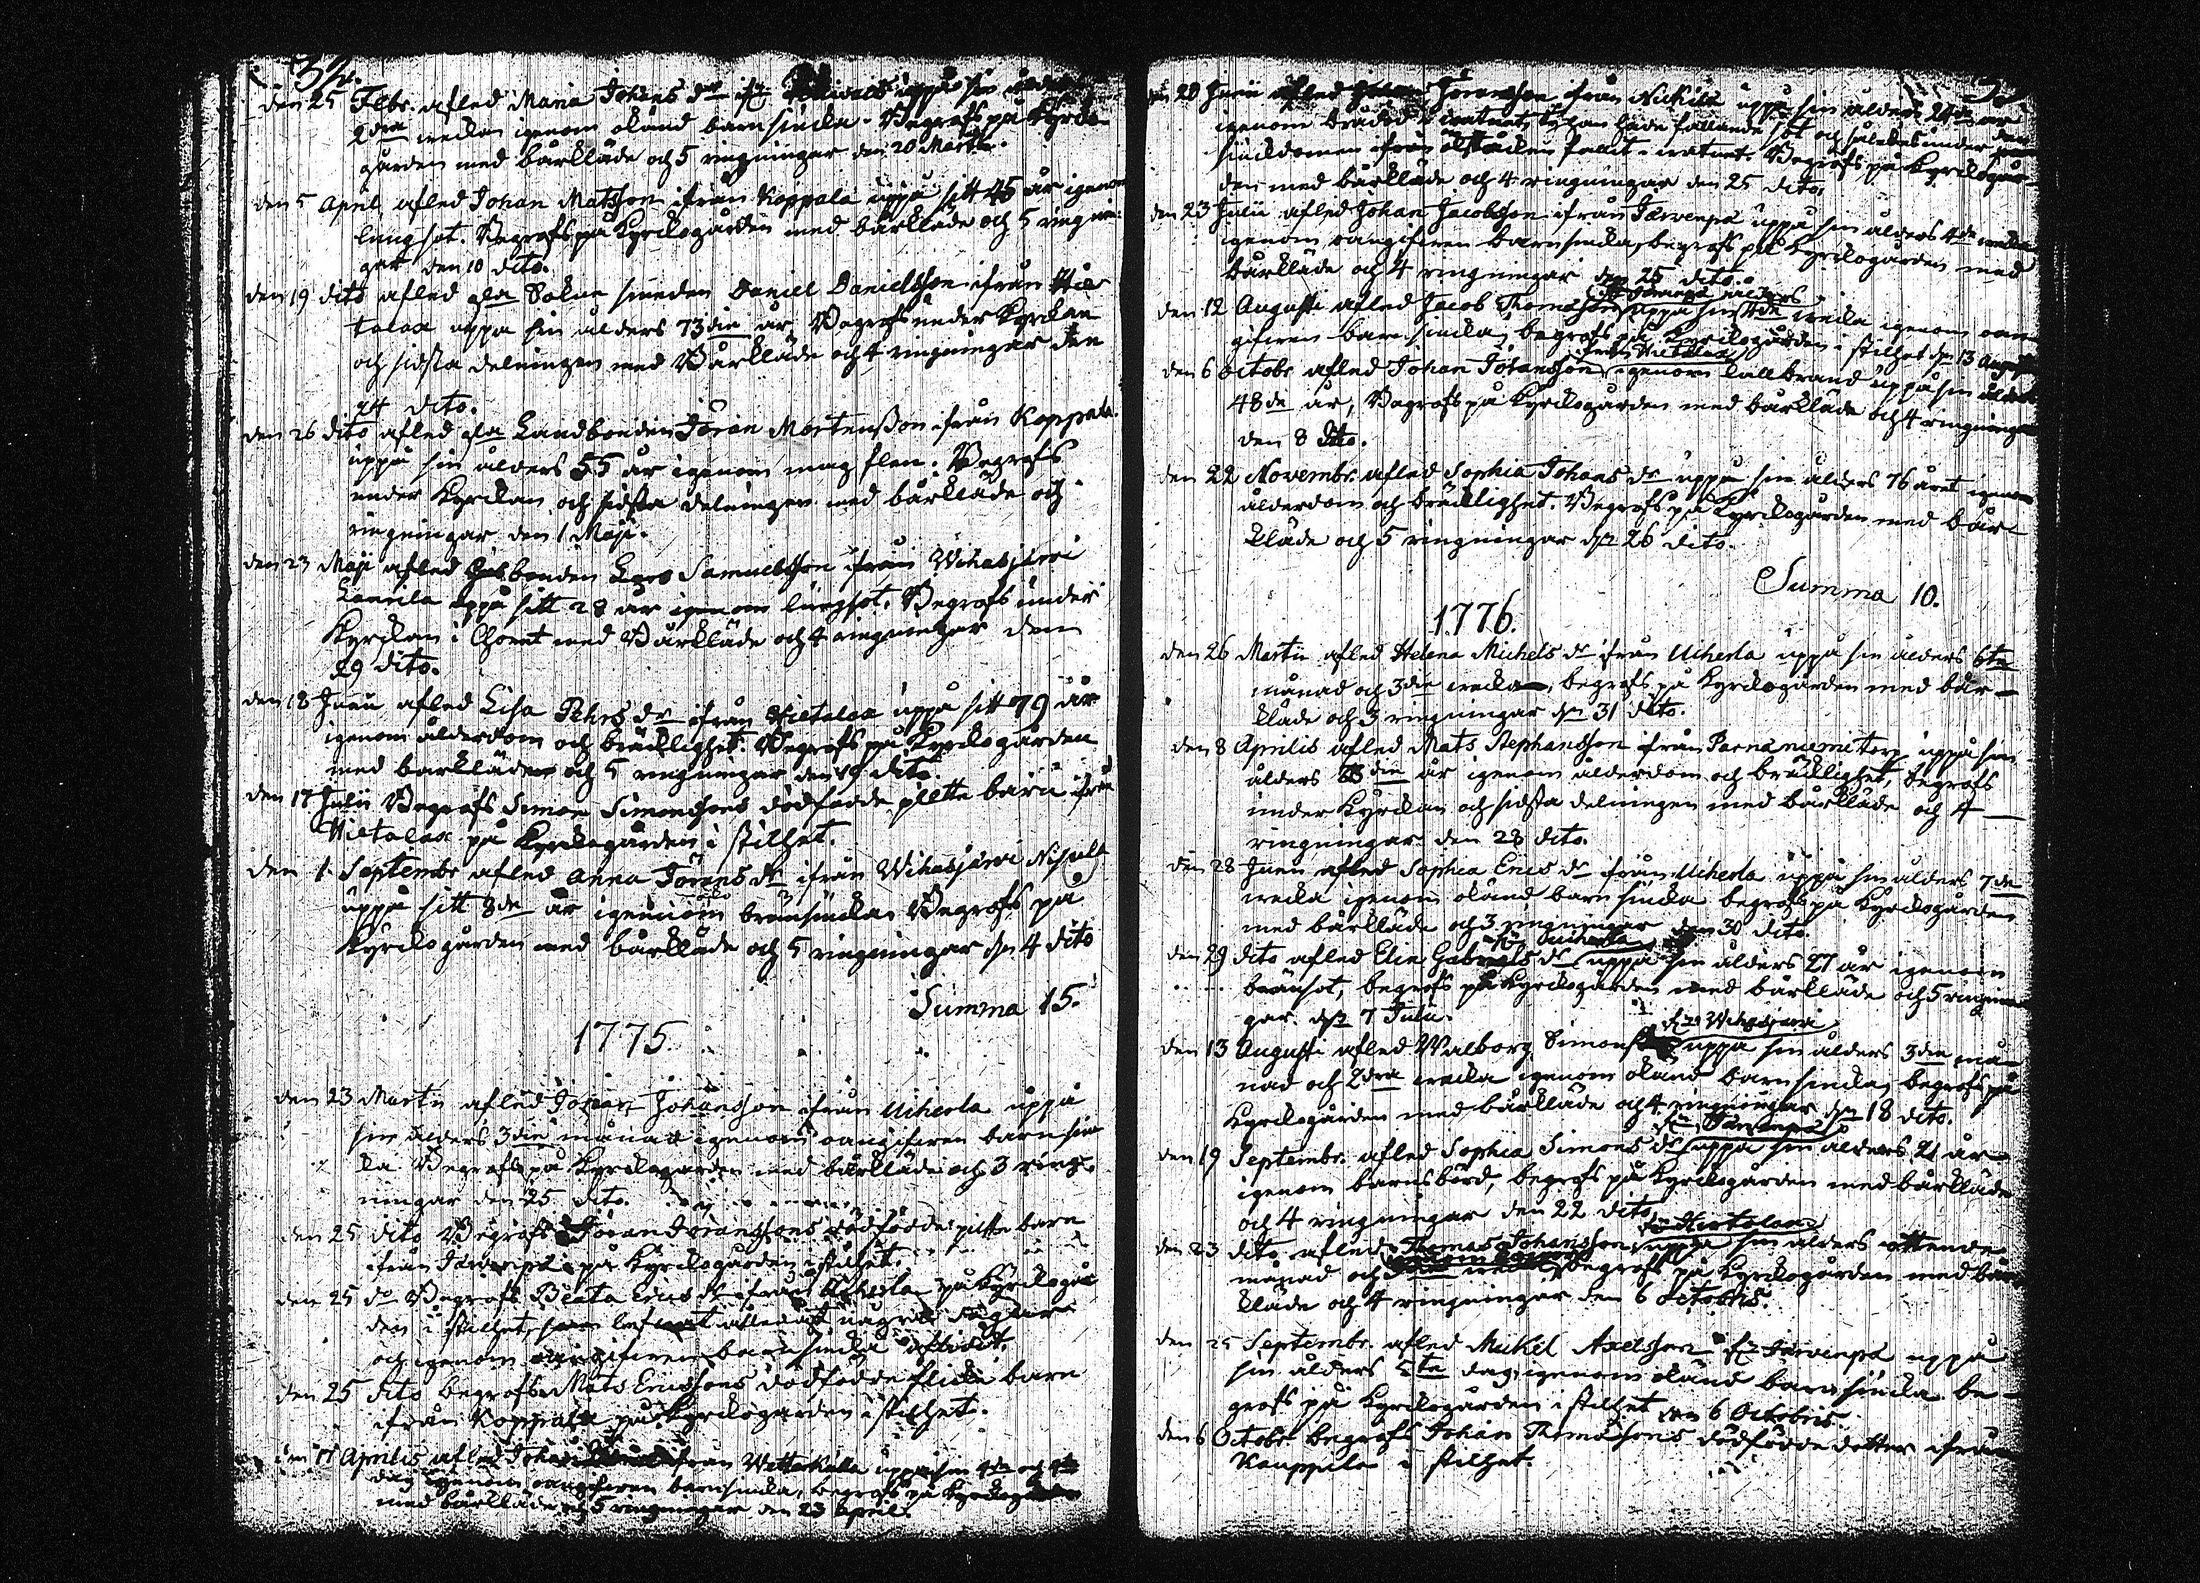 34.
den 25 Febr. afled Maria Johans dr ifr uppå sin ålders
2dra wecka igenom okänd barnsiuka. Begrofs på Kyrcko-
gården med bårkläde och 5 ringningar den 20 Martii.
den 5 April afled Johan Matsson ifrån Koppala uppå sitt 45 år igenom
lungsot. Begrofs på Kyrckogården med bårkläde och 5 ringnin-
gar den 10 dito.
den 19 dito afled gla Sokne smeden Daniel Danielsson ifrån Hie-
talax uppå sin ålders 73die år, Begrofs under Kyrckan
och sidsta delningen med Bårkläde och 4 ringningar den
24 dito.
den 26 dito afled gla Landbonden Jöran Mortensson ifrån Koppala
uppå sin ålders 55 år igenom mag flen. Begrofs
under Kyrckan och sidsta delningen med bårkläde och
ringningar den 1 Maji.
den 23 Maji afled bonden Lars Samuelsson ifrån Wihasjärvi
Laurila uppå sitt 28 år igenom lungsot. Begrofs under
Kyrckan i Choret med Bårkläde och 4 ringningar den
29 dito.
den 18 Junii afled Lisa Pehrs dr ifrån Hietalax uppå sitt 79 år
igenom ålderdom och bräcklighet. Begrofs på Kyrckogården
med barkläde och 5 ringningar den 19 dito.
den 17 Julii Begrofs Simon Simonssons dödfödde piltte barn ifrån
Hietalax på Kyrckogården i stillhet.
den 1. Septembr afled Anna Jörans dr ifrån Wihasjärvi Nisula
uppå sitt 8de år igenom bränsiuka Begrofs på
Kyrckogården med bårkläde och 5 ringningar den 4 dito
Summa 15.
1775.
den 23 Martii afled Johan Johansson ifrån Uiherla uppå
sin ålders 3die månat igenom oangifwen barnsiu-
ka Begrofs på Kyrckogården med bårkläde och 3 ring-
ningar den 25 dito.
den 25 dito Begrofs Jöran Joransons dödfödde piltte barn
ifrån Järvenpä på Kyrckogården i stillhet.
den 25 do Begrofs Beata Erics dr ifrån Uiherla på Kyrckogår-
den i stillhet, som lefwat allenast några dagar
och igenom oangifwen barnsiuka aflidit.
den 25 dito begrofs Mats Ericssons dödfödde flicke barn
ifrån Koppala på Kyrckogården i stillhet.
den 17 Aprilis afled Johan ifrån Wettenkulla uppå sin
dag igenom oangifwen barnsiuka, begrofs på Kyrckogården
med bårkläde och 5 ringningar den 23 April.
den 20 Junii afled Joransson ifrån Nickilä uppå sin ålders 24de år
igenom bråddöd i watnet, ty han hade fallande sot och således under den
siuckdomen ifrån ökstäcken fallit i watnet. Begrofs på Kyrckogår-
den med bårkläde och 4 ringningar den 25 dito.
den 23 Julii afled Johan Jacobsson ifrån Järvenpä uppå sin ålders 4de wecka
igenom oangifwen barnsiuka, begrofs på Kyrckogården med
bårkläde och 4 ringningar den 25 dito.
ifr Järvenpä ålders
den 12 Augusti afled Jacob Thomasson uppå sin 4de wecka igenom oan-
gifwen barnsiuka, begrofs på Kyrckogården i stillhet den 13 Augusti
ifrån Hietalax
den 6 Octobr afled Johan Johansson igenom kallbrand uppå sin ålders
48de år, Begrofs på Kyrckogården med bårkläde och 4 ringningar
den 8 dito.
den 22 Novembr. afled Sophia Johans dr uppå sin ålders 76 året igenom
ålderdom och bräcklighet. Begrofs på Kyrckogården med bår-
kläde och 5 ringningar den 26 dito.
Summa 10.
1776.
den 26 Martii afled Helena Michels dr ifrån Uiherla uppå sin ålders 6te
månad och 3die wecka, begrofs på Kyrckogården med bår-
kläde och 3 ringningar den 31 dito.
den 8 Aprilis afled Mats Stephansson ifrån Parnaniemi torp uppå sin
ålders die år igenom ålderdom och bräcklighet, begrofs
under Kyrckan och sidsta delningen med bårkläde och 4
ringningar den 28 dito.
den 28 Junii afled Sophia Erics dr ifrån Uiherla uppå sin ålders 7de
wecka igenom okänd barnsiuka begrofs på Kyrckogården
med bårkläde och 3 ringningar den 30 dito.
ifr Uiherla
den 29 dito afled Elin Gabriels dr uppå sin ålders 27 år igenom
bränsot, begrofs på Kyrckogården med bårkläde och 5 ringnin-
gar. den 7 Julii.
ifrån Wihasjärvi
den 13 Augusti afled Walborg Simons uppå sin ålders 3die må-
nad och 2dra wecka igenom okänd barnsiuka, begrofs på
Kyrckogården med bårkläde och 4 ringningar den 18 dito.
ifr Järvenpä
den 19 Septembr. afled Sophia Simons dr uppå sin ålders 21 år
igenom barnsbörd, begrofs på Kyrckogården med bårkläde
och 4 ringningar den 22 dito.
ifr Hietalax
den 23 dito afled Thomas Johansson uppå sin ålders ottende
månad och begrofs på Kyrckogården med bår-
kläde och 4 ringningar den 6 Octobris.
den 25 Septembr. afled Mickel Axelsson ifr Järvenpä uppå
sin ålders 5te dag igenom okänd barnsiuka be-
grofs på Kyrckogården i stillhet den 6 Octobris.
den 6 Octobr begrofs Johan Thomassons dödfödde dotter ifrån
Kauppila i stillhet.